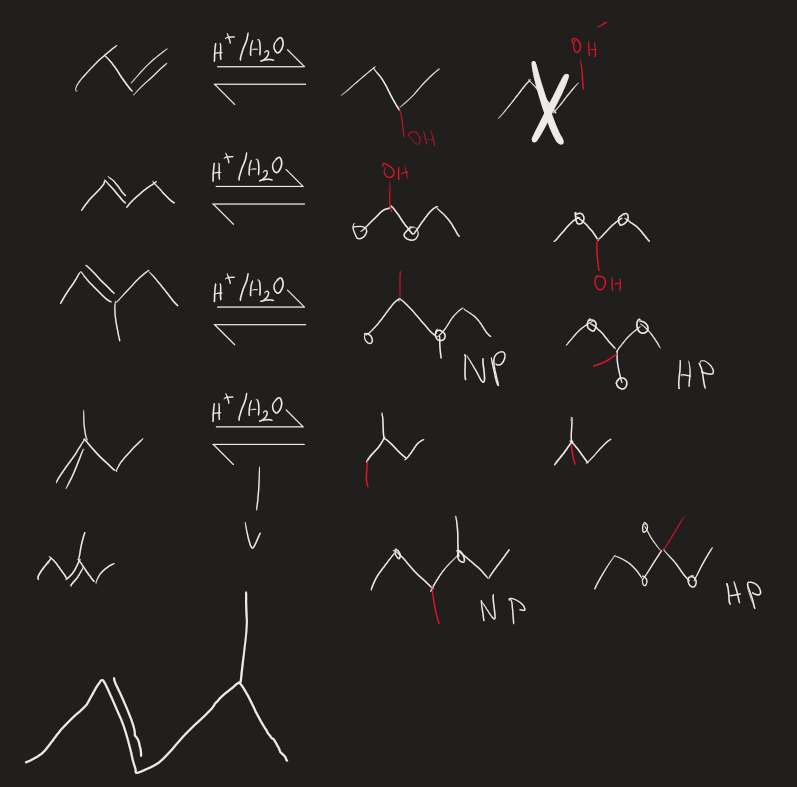 H⁺/H₂O
OH⁻
OH
H⁺/H₂O
OH
OH
H⁺/H₂O
NP
HP
H⁺/H₂O
NP
HP